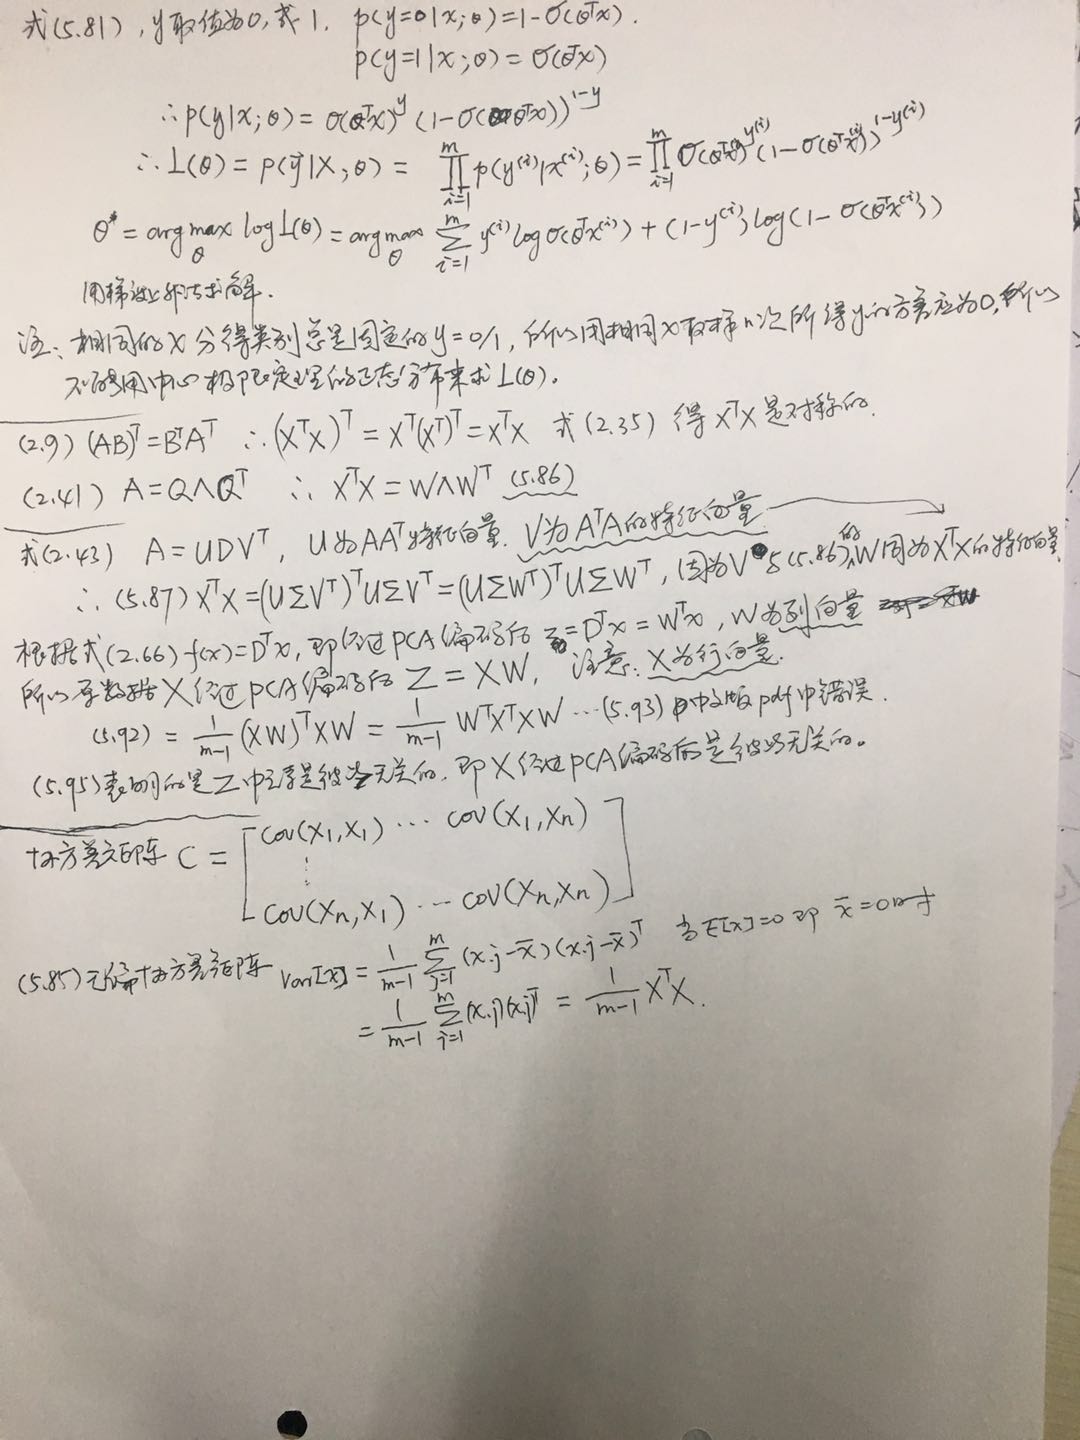 式(5.81), y取值为0,或1. p(y=0|x;θ)=1-σ(θᵀx).
p(y=1|x;θ)=σ(θᵀx)
∴p(y|x;θ)=σ(θᵀx)^y (1-σ(θᵀx))^{1-y}
∴L(θ)=p(y|X;θ)=∏_{i=1}^{m} p(y⁽ⁱ⁾|x⁽ⁱ⁾;θ)=∏_{i=1}^{m} σ(θᵀx)^{y⁽ⁱ⁾}(1-σ(θᵀx))^{1-y⁽ⁱ⁾}
θ*=arg max_θ log L(θ)=arg max_θ ∑_{i=1}^{m} y⁽ⁱ⁾ log σ(θᵀx⁽ⁱ⁾)+(1-y⁽ⁱ⁾) log(1-σ(θᵀx⁽ⁱ⁾))
用梯度上升法求解.
注:相同的x分得类别总是固定的y=0/1,所以用相同x取样n次所得y的方差应为0,所以
不能用中心极限定理的正态分布来求L(θ).
(2.9) (AB)ᵀ=BᵀAᵀ ∴(XᵀX)ᵀ=Xᵀ(Xᵀ)ᵀ=XᵀX 式(2.35)得XᵀX是对称的.
(2.41) A=QΛQᵀ ∴ XᵀX=WΛWᵀ (5.86)
式(2.43) A=UDVᵀ, U为AAᵀ特征向量. V为AᵀA的特征向量
∴(5.87) XᵀX=(UΣVᵀ)ᵀUΣVᵀ=(UΣWᵀ)ᵀUΣWᵀ, 因为V与(5.86)的W同为XᵀX的特征向量
根据式(2.66) f(x)=Dᵀx, 即经过PCA编码后 z=Dᵀx=Wᵀx, W为列向量
所以原数据X经过PCA编码后 Z=XW, 注意:X为行向量.
(5.92)=1/(m-1) (XW)ᵀXW=1/(m-1) WᵀXᵀXW…(5.93)中文版pdf中错误.
(5.95)表明的是Z中元素是彼此无关的.即X经过PCA编码后是彼此无关的。
协方差矩阵 C=[cov(x₁,x₁) … cov(x₁,xn)
⋮
cov(xn,x₁) … cov(xn,xn)]
(5.85)无偏协方差矩阵 Var[x]=1/(m-1) ∑_{j=1}^{m} (x.j-x̄)(x.j-x̄)ᵀ 当E[x]=0即x̄=0时
=1/(m-1) ∑_{j=1}^{m} (x.j)(x.j)ᵀ=1/(m-1) XᵀX.